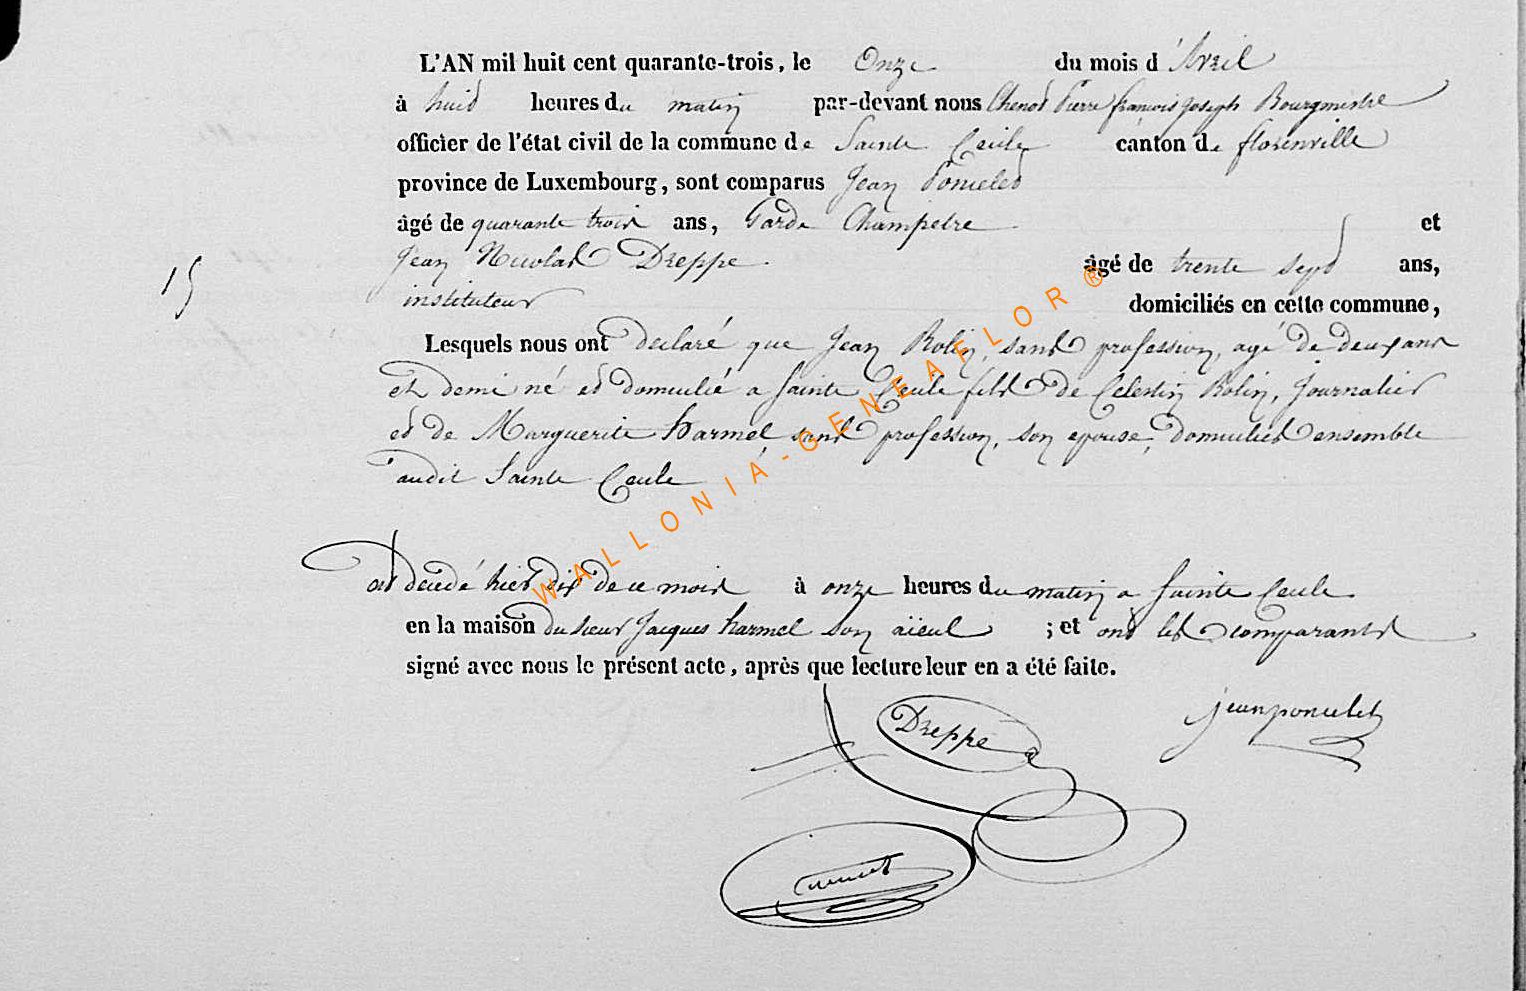 L'AN mil huit cent quarante-trois, le Onze du mois d'Avril
à huit heures du matin par-devant nous Chenot Pierre françois joseph Bourgmestre
officier de l'état civil de la commune de Sainte Cecile canton de florenville
province de Luxembourg, sont comparus Jean Poncelet
âgé de quarante trois ans, Garde Champetre et
Jean Nicolas Dreppe. âgé de trente sept ans,
15
instituteur domiciliés en cette commune,
Lesquels nous ont declaré que Jean Rolin, sans profession, agé de deux ans
et demi né et domicilié a Sainte Cecile fils de Celestin Rolin, Journalier
et de Marguerite harmel, sans profession, son epouse, domiciliés ensemble
audit Sainte Cecile
est decedé hier dix de ce mois à onze heures du matin a Sainte Cecile
en la maison du sieur Jacques harmel son aïeul ; et ont les comparants
signé avec nous le présent acte, après que lecture leur en a été faite.
jean poncelet
Dreppe
WALLONIA-GENEAFLOR®